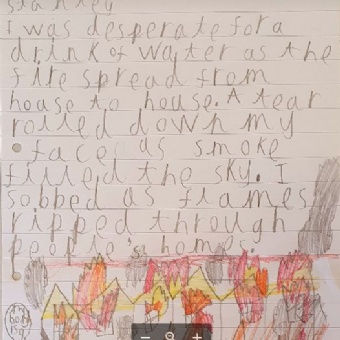 Stanley
I was desperate for a
drink of water as the
fire spread from
house to house. A tear
rolled down my
face as smoke
filled the sky. I
sobbed as flames
ripped through
people's homes.